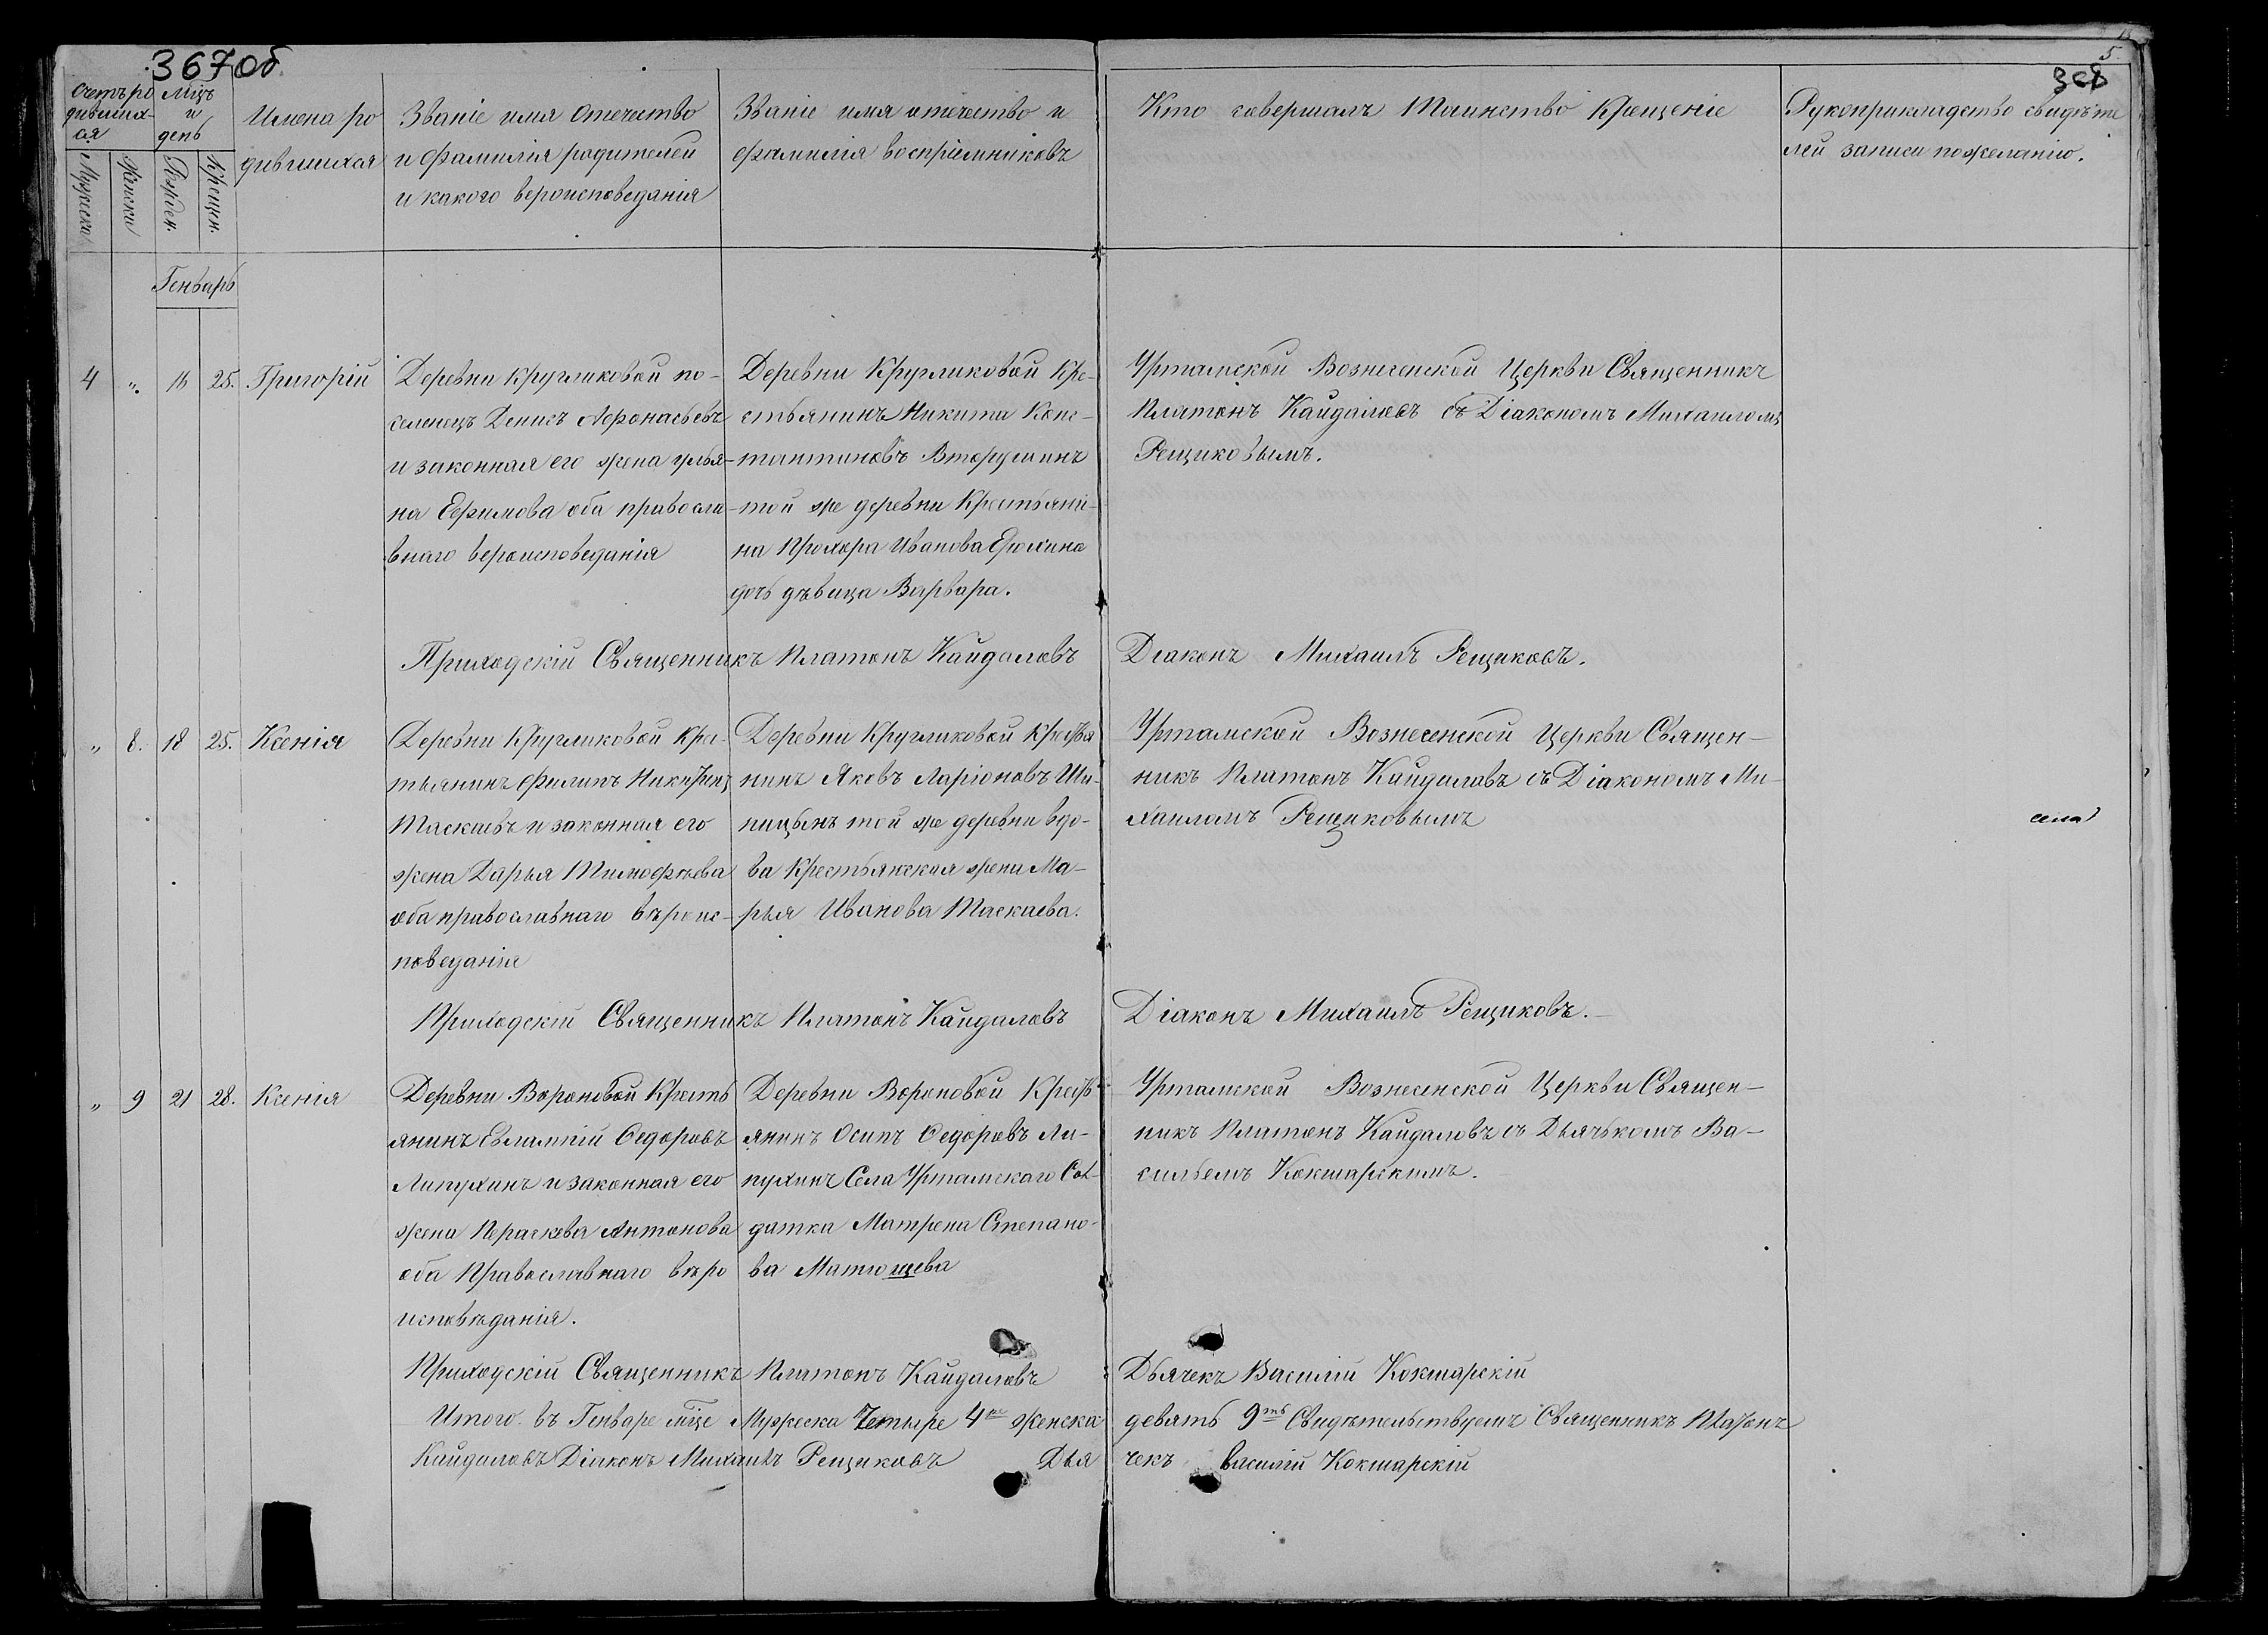 367об
368
5
Счетъ ро
дивших-
ся
Мужеска
Женска
Мцъ
и
день
Рожден.
Крещен.
Имена ро
дившихся
Званіе имя отечество
и фамилія родителей
и какого вероисповеданія
Званіе имя отечество и
фамилія воспріемниковъ
Кто совершалъ Таинство Крещеніе
Рукоприкладство свидѣте
лей записи по желанію.
Генварь
4 " 18 25. Григорій
Деревни Кругликовой по-
селенецъ Денисъ Афонасьевъ
и законная его жена улья-
на Ефимова оба правосла-
внаго вероисповеданія
Деревни Кругликовой Кре-
стьянинъ Никита Конс-
тантиновъ Вторушинъ
той же деревни Крестьяни-
на Прохора Иванова Ерохина
дочь дѣвица Варвара.
Уртамской Вознесенской Церкви Священникъ
Платонъ Кайдаловъ съ Діакономъ Михаиломъ
Рещиковымъ.
Приходскій Священникъ Платонъ Кайдаловъ
Діаконъ Михаилъ Рещиковъ.
" 8. 18 25. Ксенія
Деревни Кругликовой Крес-
тьянинъ Филипъ Никитинъ
Таскаевъ и законная его
жена Дарья Тимофѣева
оба православнаго вѣроис-
поведанія
Деревни Кругликовой Крестья
нинъ Яковъ Ларіоновъ Ши-
пицынъ той же деревни вдо-
ва Крестьянская жена Ма-
рья Иванова Таскаева.
Уртамской Вознесенской Церкви Священ-
никъ Платонъ Кайдаловъ съ Діакономъ Ми-
хаиломъ Рещиковымъ
Приходскій Священникъ Платонъ Кайдаловъ
Діаконъ Михаилъ Рещиковъ.
" 9 21 28. Ксенія
Деревни Вороновой Кресть
янинъ Евлампій Ѳедоровъ
Липухинъ и законная его
жена Параскева Антонова
оба Православнаго вѣро
исповѣданія.
Деревни Вороновой Кресть-
янинъ Осипъ Ѳедоровъ Ли-
пухинъ Села Уртамскаго Сол-
датка Матрена Степано-
ва Матющева
Уртамской Вознесенской Церкви Священ-
никъ Платонъ Кайдаловъ съ Дьячькомъ Ва-
сильемъ Кокшарскимъ.
Приходскій Священникъ Платонъ Кайдаловъ
Дьячекъ Василій Кокшарскій
Итого въ Генваре мце Мужеска Четыре 4ре женска девять 9ть Свидѣтельствуемъ Священникъ Платонъ
Кайдаловъ Діаконъ Михаилъ Рещиковъ Дья чекъ василій Кокшарскій